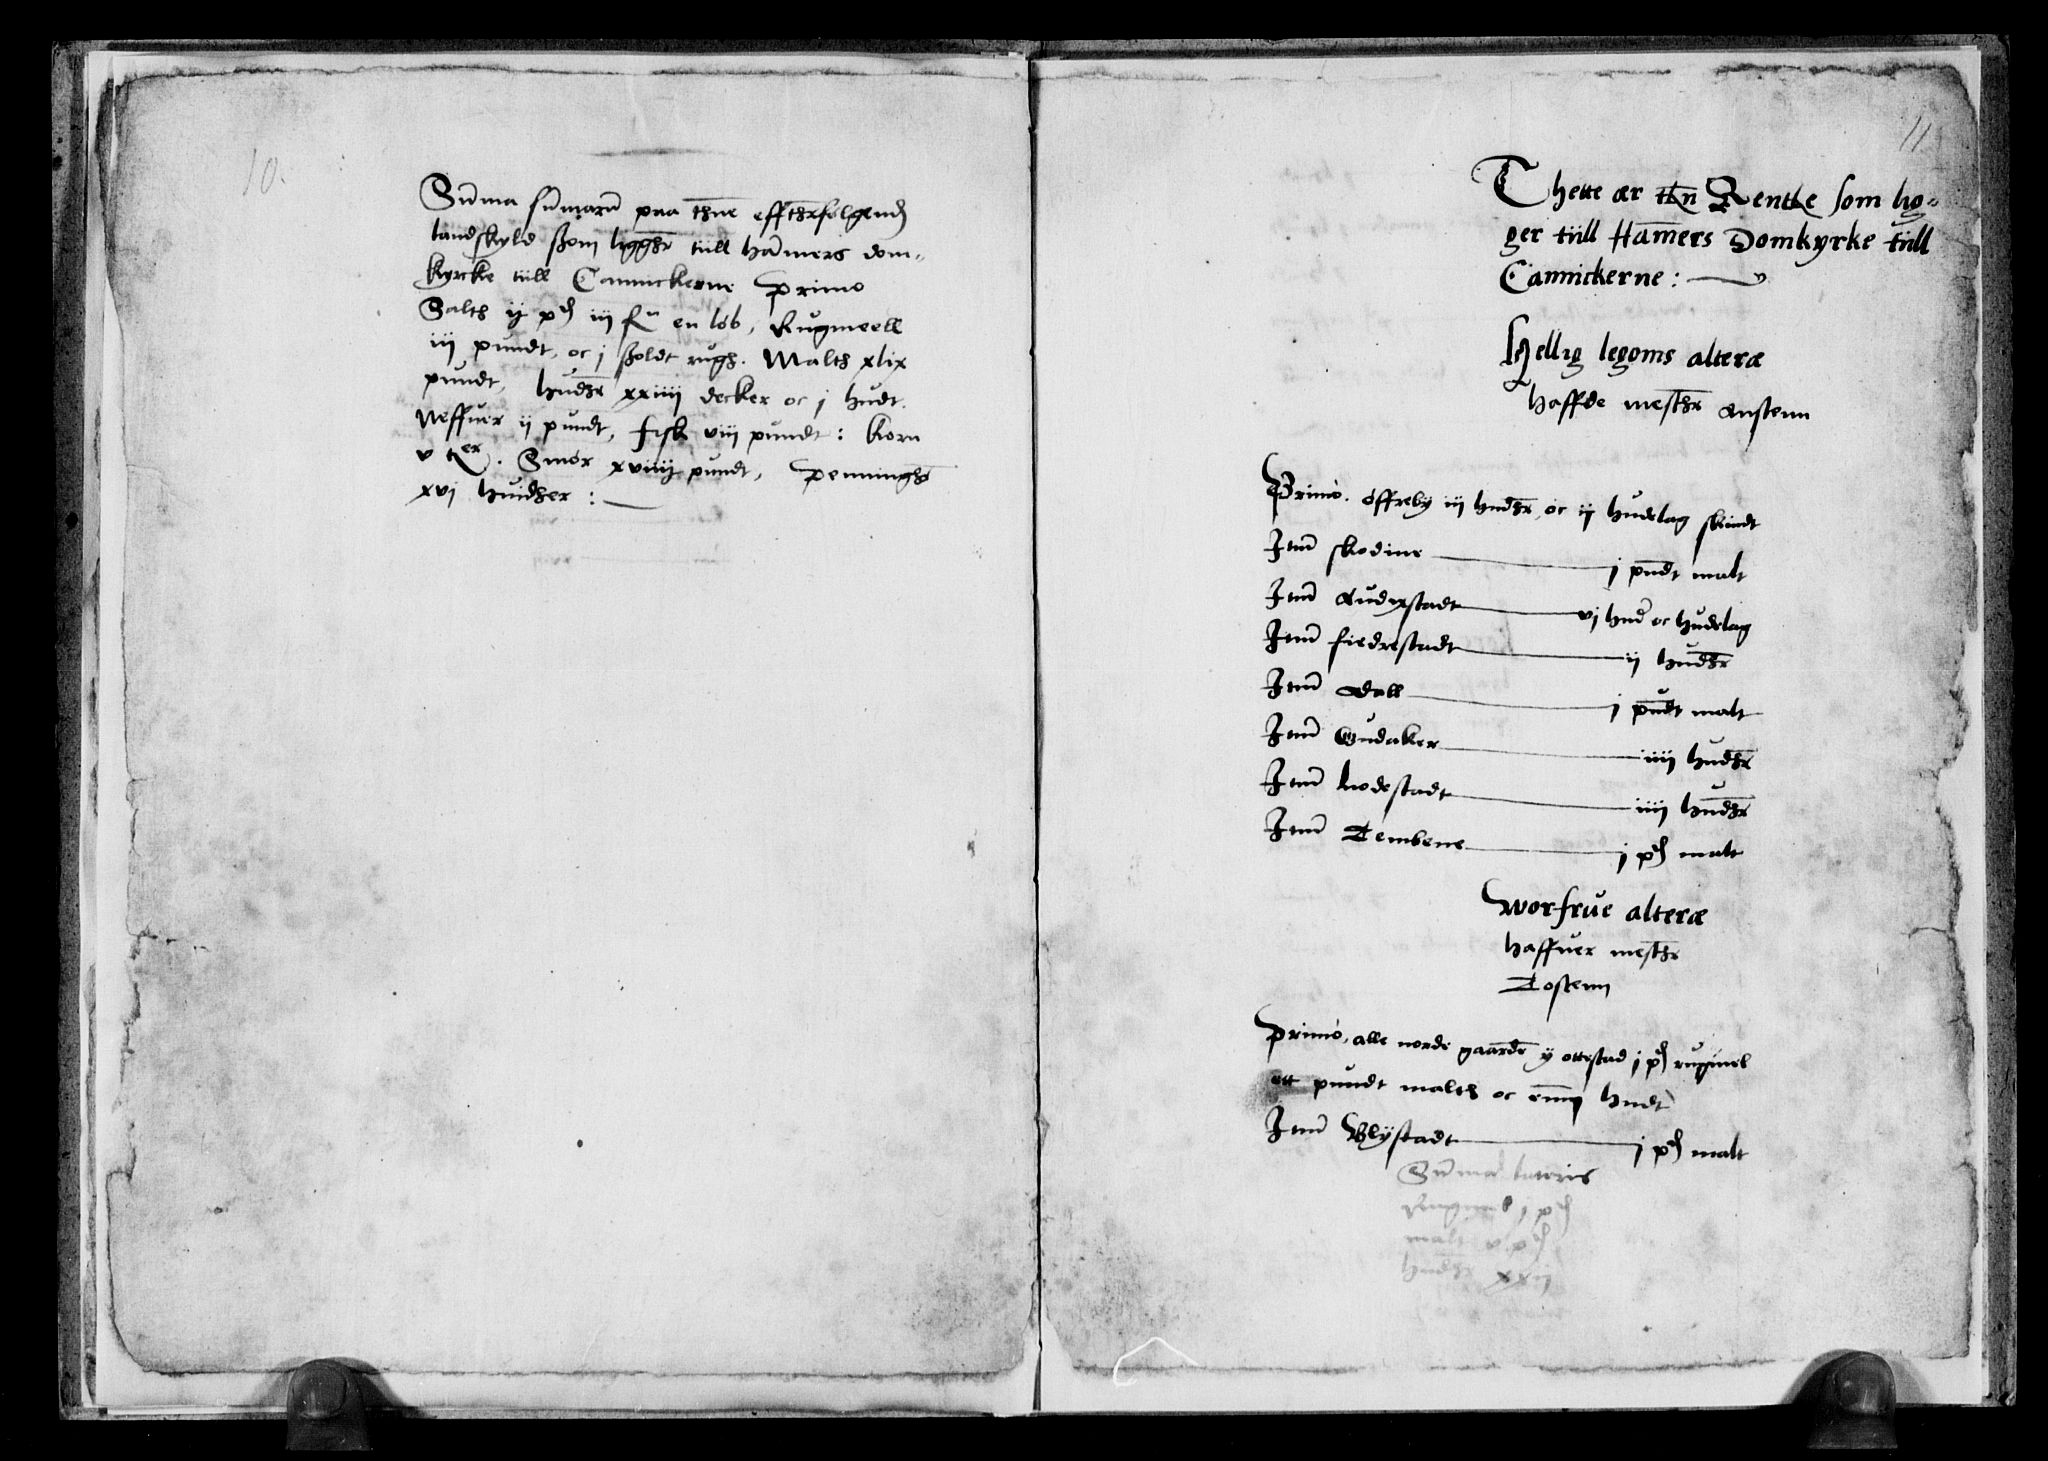 10.
Sūma sūmarū paa thn̄e effth̄rfølgend
landskyld ßom liggh̄r tiill ha̅mers dom-
kyrcke tiill Cannickerne Primo
Salth ij pd iij fn en løb, Rugmeell
iij pundt, oc j ßoldt rugh. Malth xlix
pundt, hudh̄r xxiiij decker oc j hudt.
Neffuer ij pundt, fisk viij pundt: korn
v . Smør pundt, penningh̄
xvj huidher :
11
Thette ær th̄n Renthe som lig-
ger tiill Ham̄ers Domkyrke tiill
Cannickerne :
Hellig legoms alteræ
haffde mesth̄r Anstenn
Primo. Øffreby iij hudh̄r, oc ij hudelag skindt
Itm̄ skodine j pundt malt
Itm̄ vj hud̄ oc hudelag
Itm̄ fiedrestadt ij hudh̄r
Itm̄ Dall j pundt malt
Itm̄ Gudaker iiij hudh̄r
Itm̄ lodestadt iiij hudh̄r
Itm̄ Tembene j pd malt
Worfrue alteræ
haffuer mesth̄r
Tostenn
Primo, alle norde gaarde y ottestad j pd rugmel
ett pundt malth oc hudt
Itm̄ Blystadt j pd malt
Sūma lateris
Rugmel j pd
malt v pd
hudh̄r xxij